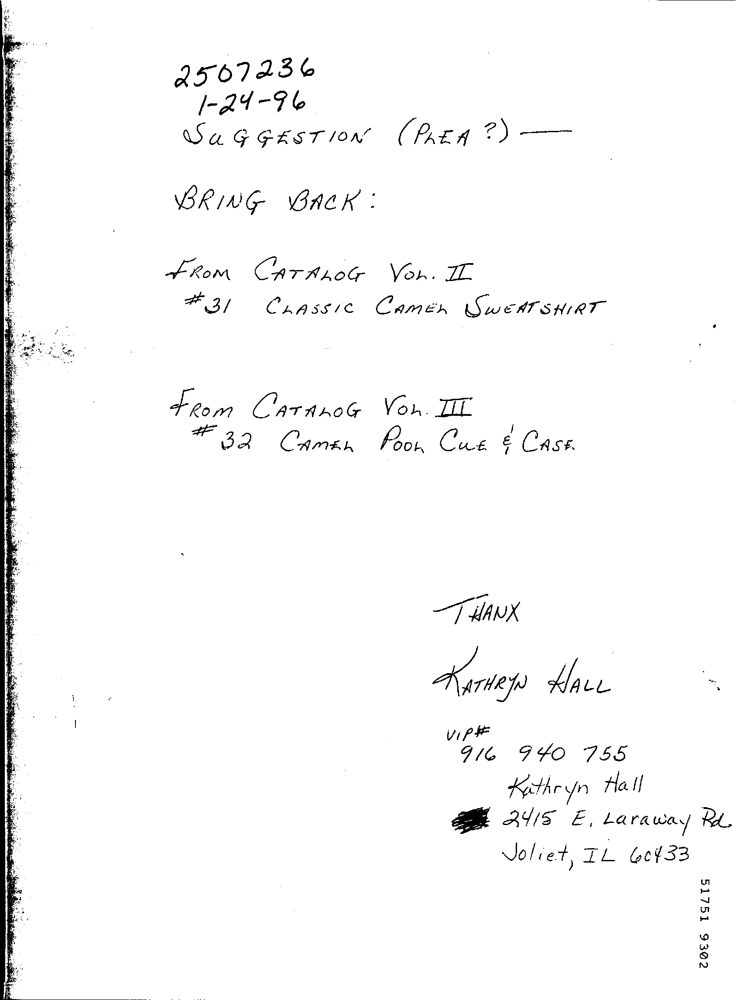 2507236
1-24-96
SUGGESTION (PLEA?) —
BRING BACK:
FROM CATALOG VOL. II
#31 CLASSIC CAMEL SWEATSHIRT
FROM CATALOG VOL. III
#32 CAMEL POOL CUE & CASE
THANX
KATHRYN HALL
VIP#
916 940 755
Kathryn Hall
2415 E. Laraway Rd
Joliet, IL 60433
51751 9302